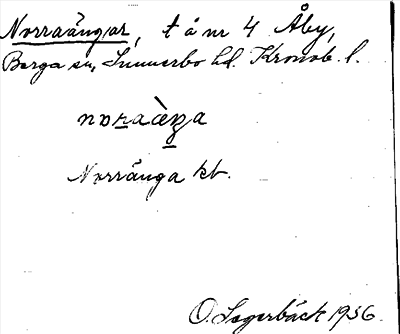 Norraängar, t å nr 4 Åby,
Berga sn, Sunnerbo hd. Kronob. l.
Norränga kt.
O. Lagerbäck 1936